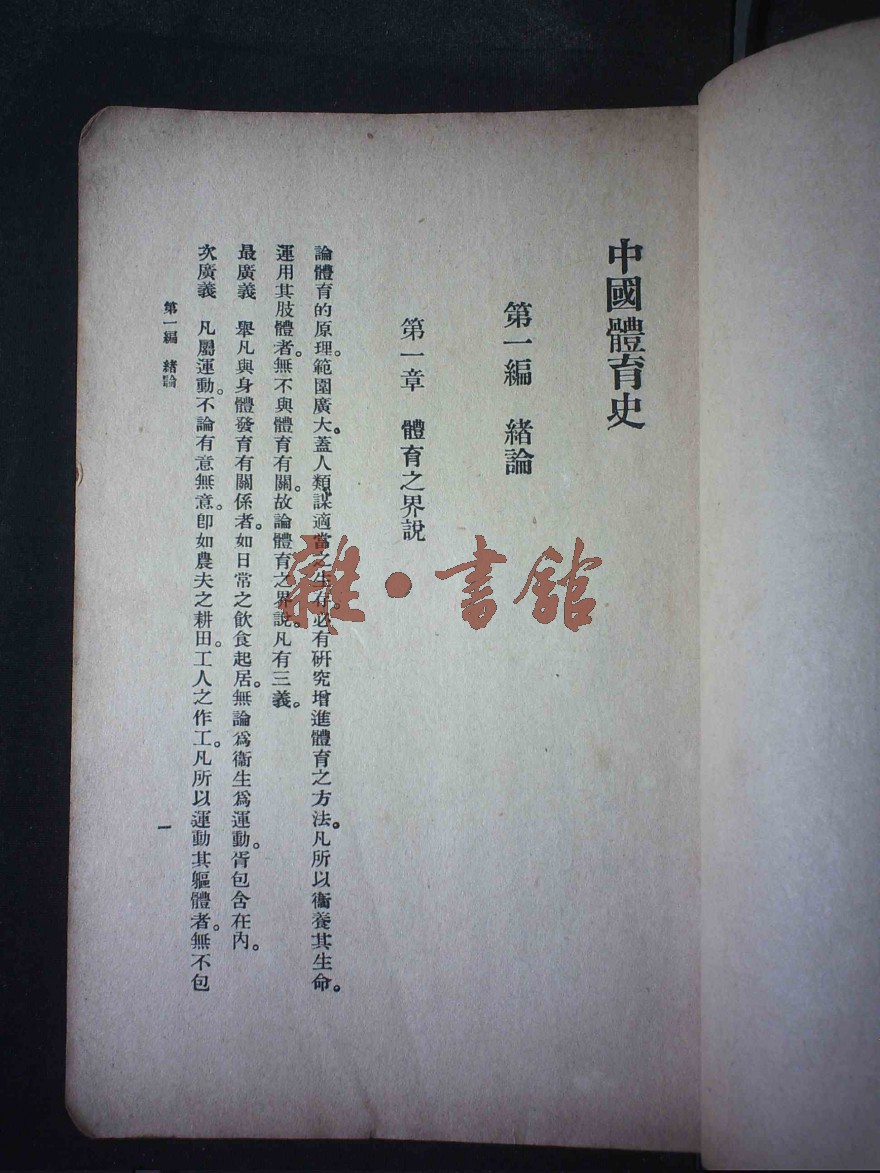 中國體育史
第一編　緒論
第一章　體育之界說
論體育的原理。範圍廣大。蓋人類謀適當之生存。必有研究增進體育之方法。凡所以衞養其生命。
運用其肢體者。無不與體育有關。故論體育之界說。凡有三義。
最廣義　舉凡與身體發育有關係者。如日常之飲食起居。無論爲衞生爲運動。胥包含在內。
次廣義　凡屬運動。不論有意無意。卽如農夫之耕田。工人之作工。凡所以運動其軀體者。無不包
第一編　緒論
一
雜·書館